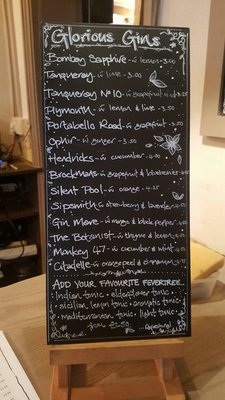 Glorious Gins
Bombay Sapphire - w lemon - 3.50
Tanqueray - w lime - 3.00
Tanqueray No 10 - w grapefruit
Plymouth - w lemon & lime - 3.50
Portabello Road - w grapefruit - 3.50
Ophir - w ginger - 3.50
Hendricks - w cucumber
Brockmans - w grapefruit & blueberries
Silent Pool - w orange - 4.25
Sipsmith - w strawberry & lavender
Gin Mare - w mango & black pepper
The Botanist - w thyme & lemon
Monkey 47 - w cucumber & mint
Citadelle - w orange peel & cinnamon
ADD YOUR FAVOURITE FEVERTREE...
Indian tonic • elderflower tonic •
sicilian lemon tonic • aromatic tonic
• mediterranean tonic • light tonic •